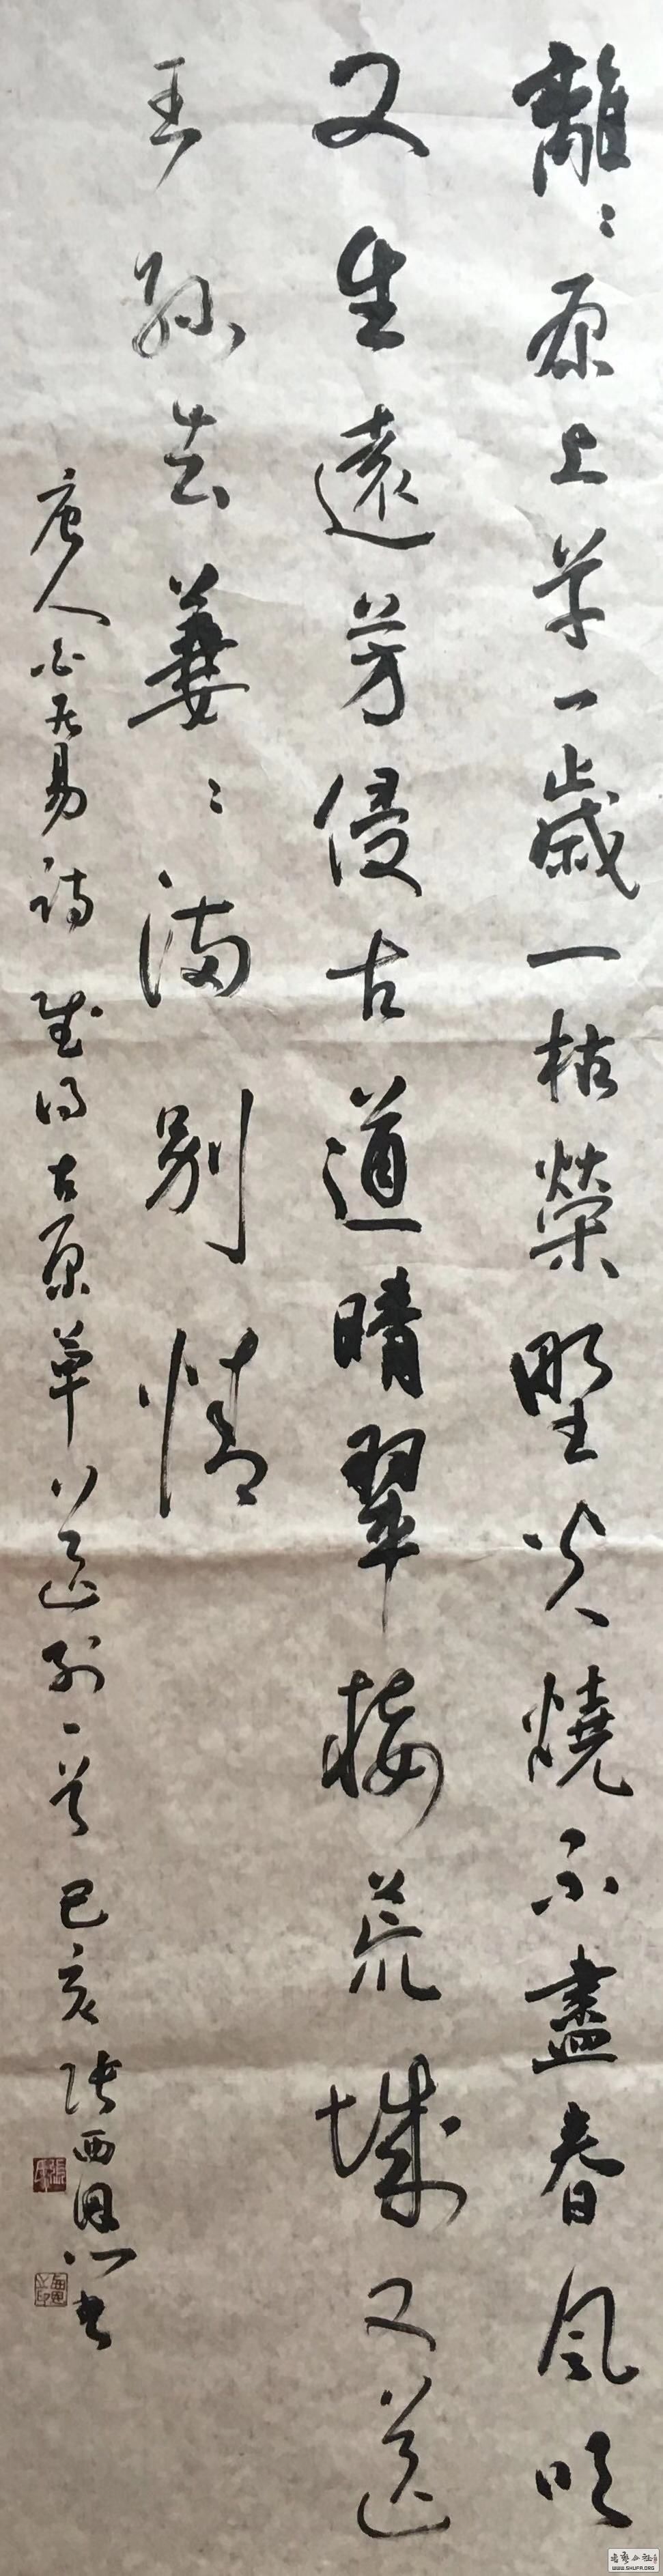 離〻原上草一歲一枯榮野火燒不盡春風吹
又生遠芳侵古道晴翠接荒城又送
王孫去萋〻滿別情
唐人白居易詩賦得古原草送別一首己亥張西恩書
WWW.SHUFA.ORG